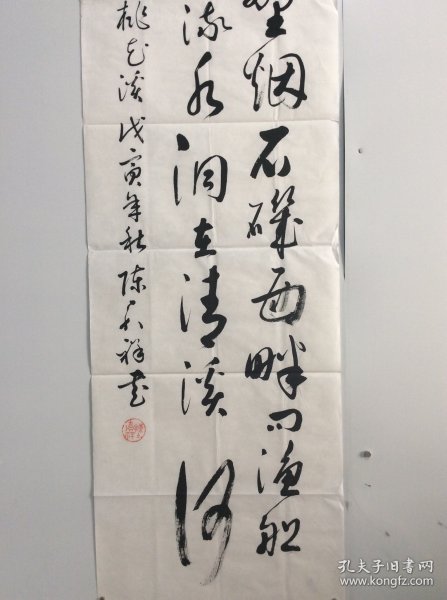 野烟石矶西畔问渔船
流水洞在清溪何
桃花溪戊寅年秋陈天祥书
孔夫子旧书网
www.kongfz.com